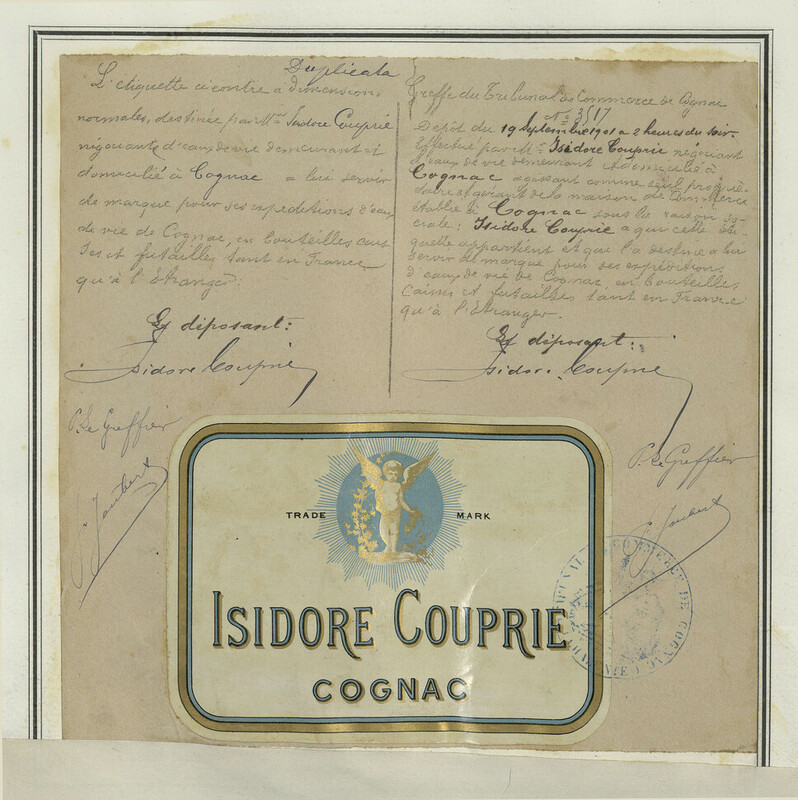 Duplicata
L'étiquette ci contre a dimensions
normales, destinée par Mr. Isidore Couprie
négociante d'eaux de vie demeurant et
domicilié à Cognac a lui servir
de marque pour ses expéditions d'eaux
de vie de Cognac, en bouteilles cais
ses et futailles tant en France
qu'à l'Etranger.
Le déposant:
Isidore Couprie
P. Le Greffier
J. Joubert
Greffe du Tribunal de Commerce de Cognac
No 3517
Dépôt du 19 Septembre 1901 a 2 heures du soir.
Effectué par Mr. Isidore Couprie négociant
d'eaux de vie demeurant et domicilié à
Cognac agissant comme seul proprié-
taire et gérant de la maison de Commerce
établie à Cognac sous la raison so-
ciale: Isidore Couprie a qui cette éti-
quette appartient et que l'a destine a lui
servir de marque pour ses expéditions
d'eaux de vie de Cognac, en bouteilles
caisses et futailles tant en France
qu'à l'Etranger.
Le déposant:
Isidore Couprie
P. Le Greffier
J. Joubert
TRADE MARK
ISIDORE COUPRIE
COGNAC
TRIBUNAL DE COMMERCE DE COGNAC